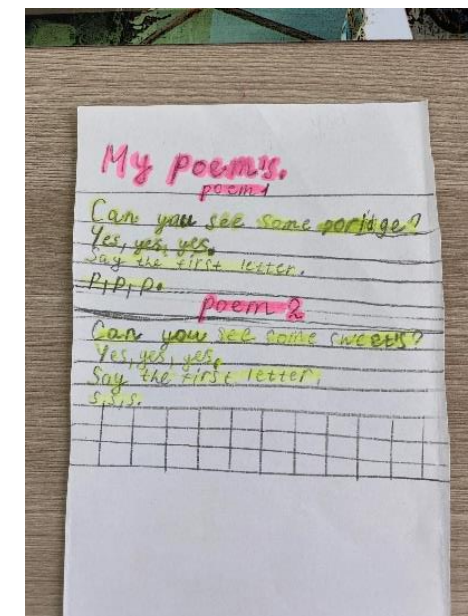 My poem's.
poem 1
Can you see some poridge?
Yes, yes, yes.
Say the first letter.
P, P, P.
poem 2
Can you see some sweets?
Yes, yes, yes.
Say the first letter.
s, s, s.